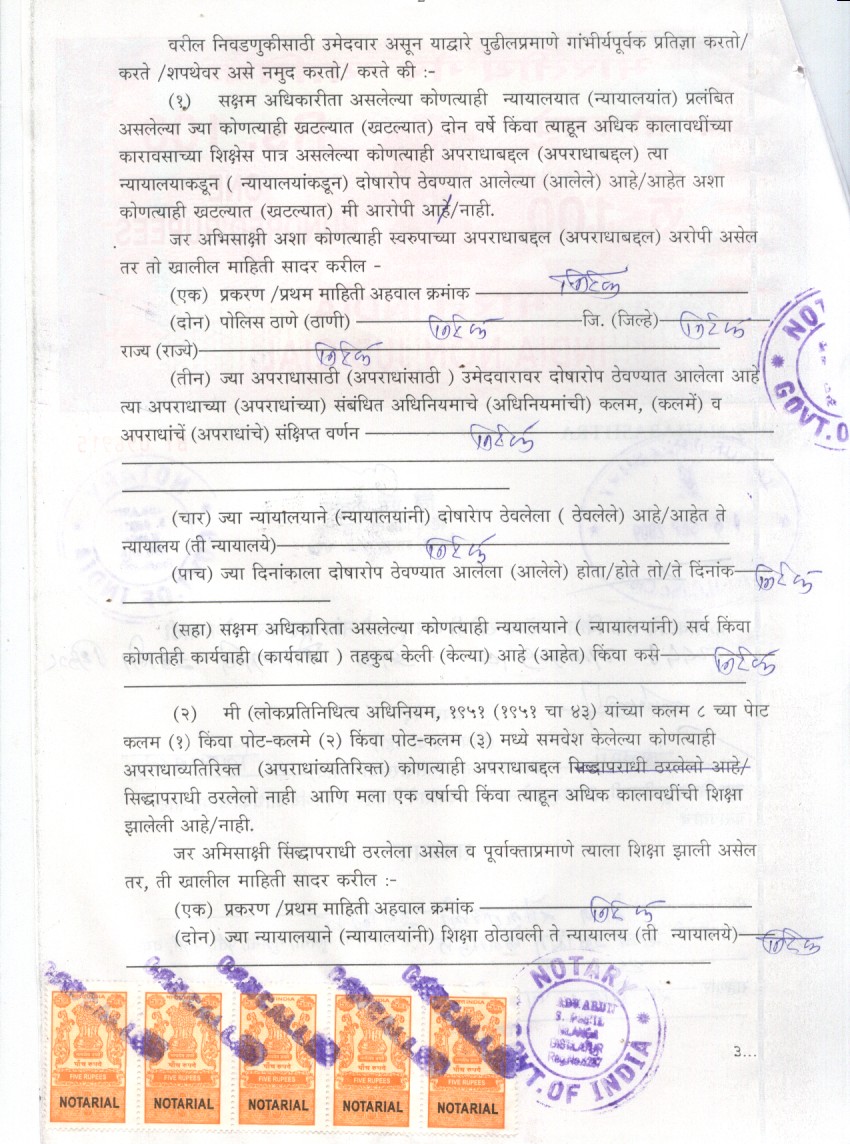 वरील निवडणुकीसाठी उमेदवार असून याद्वारे पुढीलप्रमाणे गांभीर्यपूर्वक प्रतिज्ञा करतो/
करते /शपथेवर असे नमुद करतो/ करते की :-
(१) सक्षम अधिकारीता असलेल्या कोणत्याही न्यायालयात (न्यायालयांत) प्रलंबित
असलेल्या ज्या कोणत्याही खटल्यात (खटल्यात) दोन वर्षे किंवा त्याहून अधिक कालावधींच्या
कारावसाच्या शिक्षेस पात्र असलेल्या कोणत्याही अपराधाबद्दल (अपराधाबद्दल) त्या
न्यायालयाकडून ( न्यायालयांकडून) दोषारोप ठेवण्यात आलेल्या (आलेले) आहे/आहेत अशा
कोणत्याही खटल्यात (खटल्यात) मी आरोपी आहे/नाही.
जर अभिसाक्षी अशा कोणत्याही स्वरुपाच्या अपराधाबद्दल (अपराधाबद्दल) अरोपी असेल
तर तो खालील माहिती सादर करील -
(एक) प्रकरण /प्रथम माहिती अहवाल क्रमांक निरंक
(दोन) पोलिस ठाणे (ठाणी) निरंक जि. (जिल्हे) निरंक
राज्य (राज्ये) निरंक
(तीन) ज्या अपराधासाठी (अपराधांसाठी ) उमेदवारावर दोषारोप ठेवण्यात आलेला आहे
त्या अपराधाच्या (अपराधांच्या) संबंधित अधिनियमाचे (अधिनियमांची) कलम, (कलमें) व
अपराधांचें (अपराधांचे) संक्षिप्त वर्णन निरंक
(चार) ज्या न्यायालयाने (न्यायालयांनी) दोषारोप ठेवलेला ( ठेवलेले) आहे/आहेत ते
न्यायालय (ती न्यायालये) निरंक
(पाच) ज्या दिनांकाला दोषारोप ठेवण्यात आलेला (आलेले) होता/होते तो/ते दिंनांक निरंक
(सहा) सक्षम अधिकारिता असलेल्या कोणत्याही न्ययालयाने ( न्यायालयांनी) सर्व किंवा
कोणतीही कार्यवाही (कार्यवाह्या ) तहकुब केली (केल्या) आहे (आहेत) किंवा कसे निरंक
(२) मी (लोकप्रतिनिधित्व अधिनियम, १९५१ (१९५१ चा ४३) यांच्या कलम ८ च्या पोट
कलम (१) किंवा पोट-कलमे (२) किंवा पोट-कलम (३) मध्ये समवेश केलेल्या कोणत्याही
अपराधाव्यतिरिक्त (अपराधांव्यतिरिक्त) कोणत्याही अपराधाबद्दल सिद्धापराधी ठरलेलो आहे/
सिद्धापराधी ठरलेलो नाही आणि मला एक वर्षाची किंवा त्याहून अधिक कालावधींची शिक्षा
झालेली आहे/नाही.
जर अमिसाक्षी सिंद्धापराधी ठरलेला असेल व पूर्वाक्ताप्रमाणे त्याला शिक्षा झाली असेल
तर, ती खालील माहिती सादर करील :-
(एक) प्रकरण /प्रथम माहिती अहवाल क्रमांक निरंक
(दोन) ज्या न्यायालयाने (न्यायालयांनी) शिक्षा ठोठावली ते न्यायालय (ती न्यायालये) निरंक
3...
NOTARY
GOVT. OF INDIA
CANCELLED CANCELLED CANCELLED CANCELLED CANCELLED
FIVE RUPEES FIVE RUPEES FIVE RUPEES FIVE RUPEES FIVE RUPEES
NOTARIAL NOTARIAL NOTARIAL NOTARIAL NOTARIAL